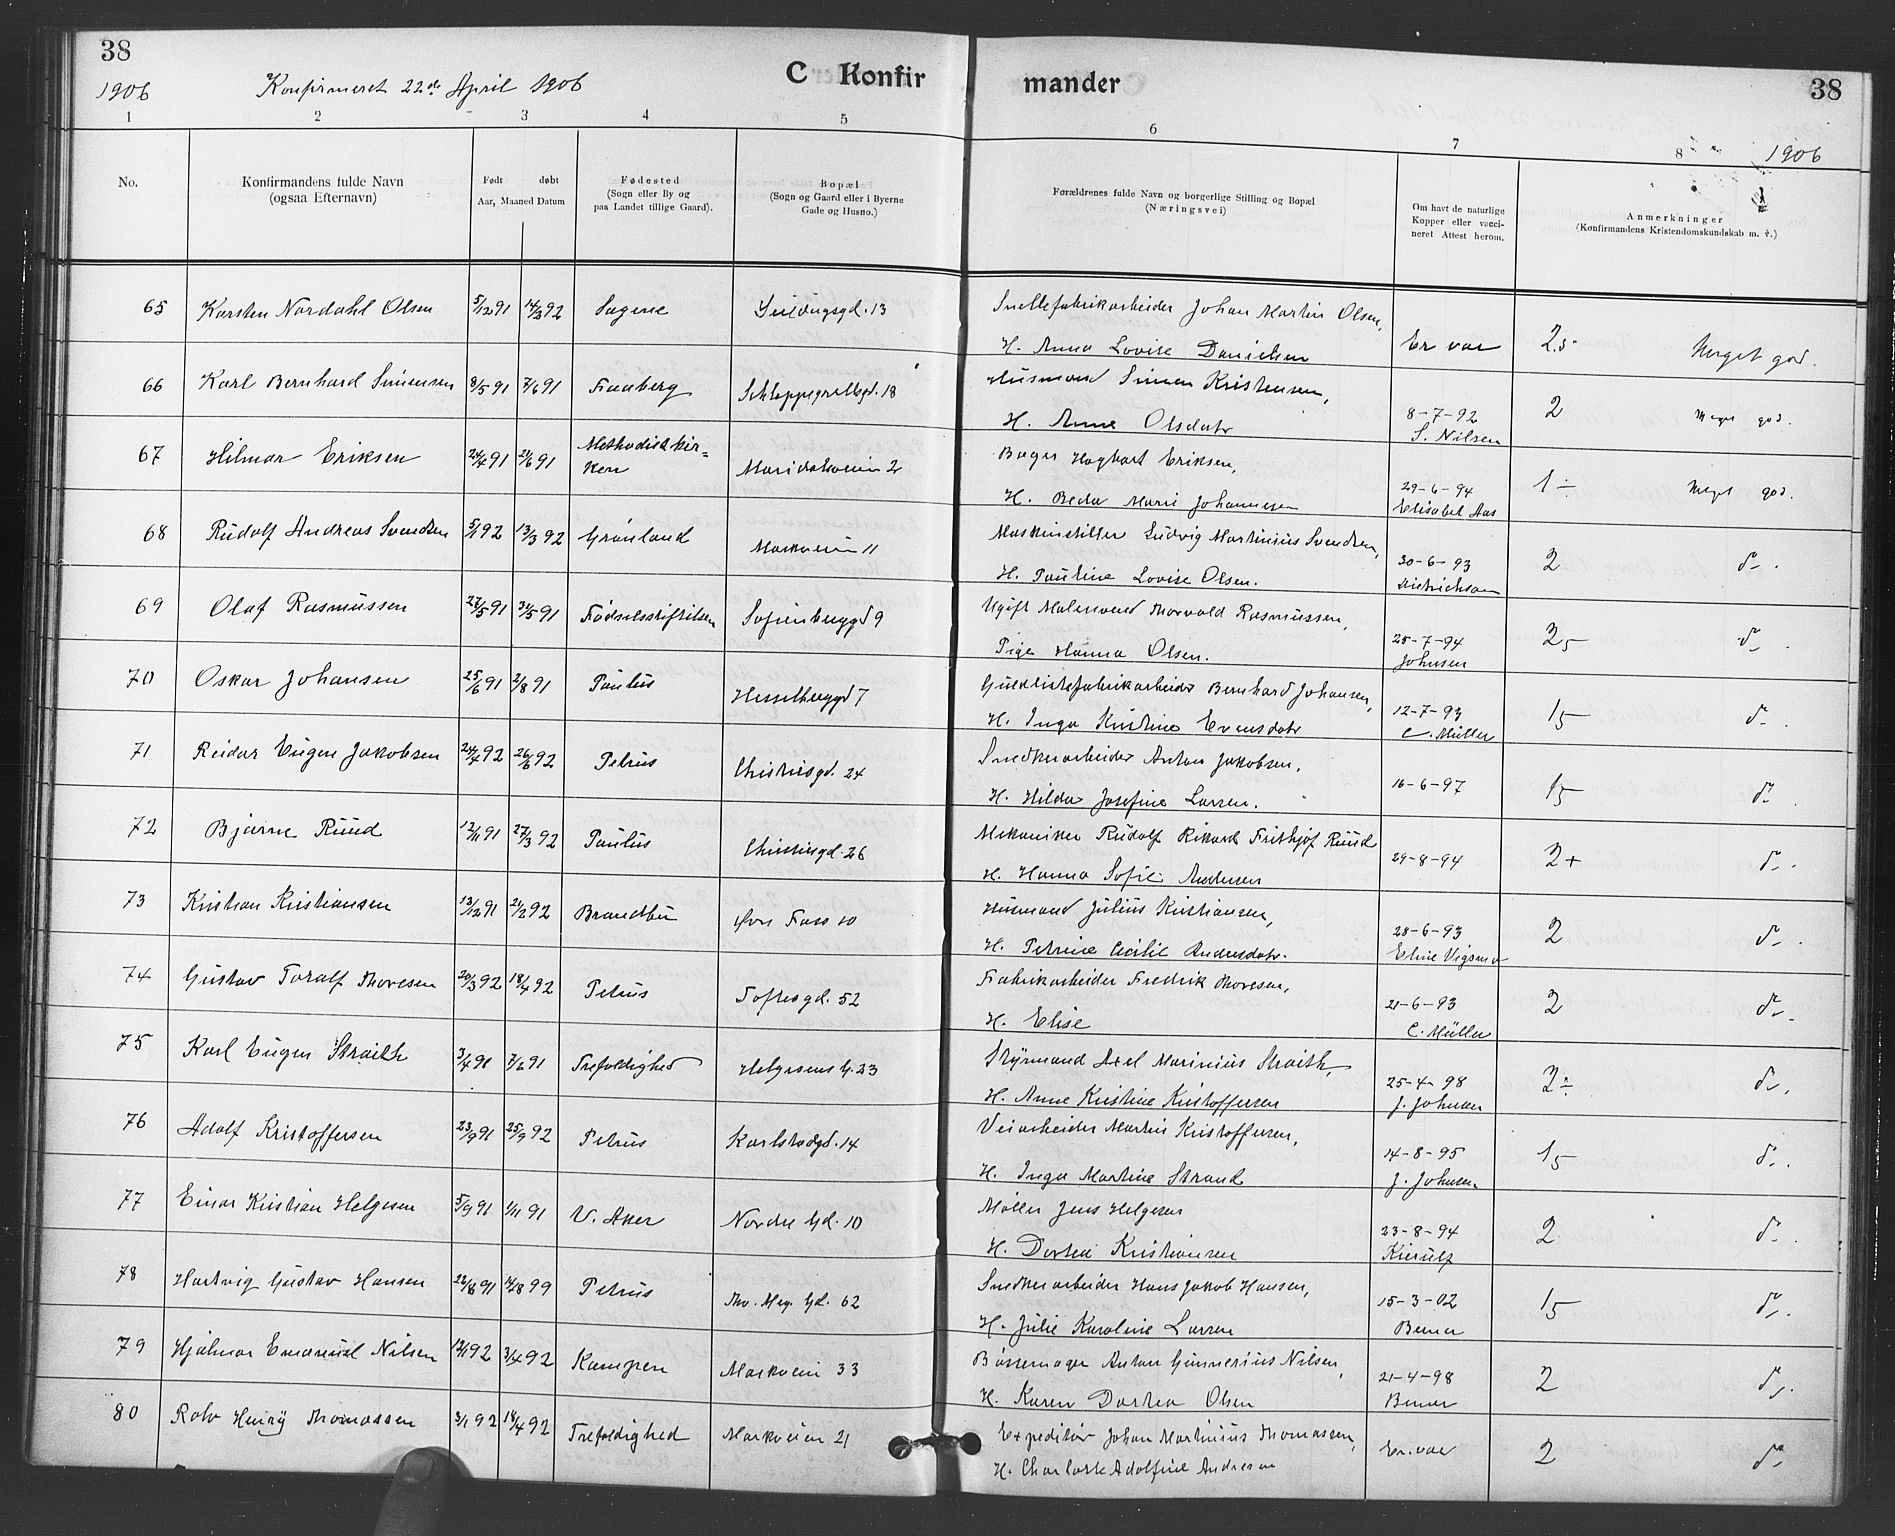 38
C Konfir mander
38
1906 Konfirmeret 22de April 1906
1906
1 2 3 4 5 6 7 8
No.
Konfirmandens fulde Navn
(ogsaa Efternavn)
Født døbt
Aar, Maaned Datum
Fødested
(Sogn eller By og
paa Landet tillige Gaard).
Bopæl
(Sogn og Gaard eller i Byerne
Gade og Husno.)
Forældrenes fulde Navn og borgerlige Stilling og Bopæl
(Næringsvei)
Om havt de naturlige
Kopper eller vacci-
neret Attest herom.
Anmerkninger
(Konfirmandens Kristendomskundskab m. v.)
65 Karsten Nordahl Olsen 5/12 91 14/2 92 Sagene 13 Johan Martin Olsen,
H. Anna Lovise Danielsen Er vac 2,5 Meget god.
66 Karl Bernhard Simensen 8/5 91 7/6 91 Faaberg Schleppegrellsgd. 18 Husmand Simen Kristensen,
H. Anne Olsdatr 8-7-92 2 Meget god.
S. Nilsen
67 Hilmar Eriksen 24/4 91 21/6 91 Methodistkir=
ken Maridalsveien 2 Bager Hagbart Eriksen,
H. Beda Marie Johannesen 29-6-94 1÷ Meget god.
Elisabet Aas
68 Rudolf Andreas Svendsen 5/1 92 13/3 92 Grønland Markveien 11 Maskinstiller Ludvig Martinius Svendsen,
H. Pauline Lovise Olsen. 30-6-93 2 do.
Didrichsen
69 Olaf Rasmussen 27/5 91 31/5 91 Fødselsstiftelsen Sofienberggd 9 Ugift Malersvend Thorvald Rasmussen,
Pige Hanna Olsen. 25-7-94 25 do.
Johnsen
70 Oskar Johansen 25/6 91 2/8 91 Paulus Hesselberggd 7 Guldlistefabrikarbeider Bernhard Johansen,
H. Inga Kristine Evensdatr 12-7-93 15 do.
C. Müller
71 Reidar Eugen Jakobsen 24/4 92 26/6 92 Petrus Christiesgd. 24 Snedkerarbeider Anton Jakobsen,
H. Hilda Josefine Larsen. 16-6-97 15 do.
72 Bjarne Ruud 12/11 91 27/3 92 Paulus Christiesgd. 26 Mekaniker Rudolf Rikard Frithjof Ruud
H. Hanna Sofie Andersen 29-8-94 2+ do.
73 Kristian Kristiansen 13/12 91 21/2 92 Brandbu Øvre Foss 10 Husmand Julius Kristiansen,
H. Petrine Cecilie Andersdatr. 28-6-93 2 do.
Eline
74 Gustav Toralf Thoresen 20/3 92 18/4 92 Petrus Toftesgd. 52 Fabrikarbeider Fredrik Thoresen,
H. Elise 21-6-93 2 do.
C. Müller
75 Karl Eugen Straith 3/4 91 7/6 91 Trefoldighed Helgesens G. 23 Styrmand Axel Marinius Straith,
H. Anne Kristine Kristoffersen 25-4-98 2÷ do.
J. Johnsen
76 Adolf Kristoffersen 23/9 91 25/9 92 Petrus Karlstadgd. 14 Veiarbeider Martin Kristoffersen,
H. Inga Martine Strand 14-8-95 15 do.
J. Johnsen
77 Einar Kristian Helgesen 5/9 91 1/11 91 V. Aker Nordre Gd. 10 Møller Jens Helgesen
H. Dortea Kristiansen 23-8-94 2 do.
Kierulf
78 Hartvig Gustav Hansen 22/6 91 14/8 99 Petrus Th. Mey. Gd. 62 Snedkerarbeider Hans Jakob Hansen,
H. Julie Karoline Larsen 15-3-02 15 do.
79 Hjalmar Emanuel Nilsen 12/1 92 3/4 92 Kampen Markveien 33 Bøssemager Anton Gunnerius Nilsen,
H. Karen Dortea Olsen 21-4-98 2 do.
80 Rolv Henry Thomassen 3/1 92 18/4 92 Trefoldighed Markveien 21 Expeditør Johan Martinius Thomassen,
H. Charlotte Adolfine Andresen Er vac 2 do